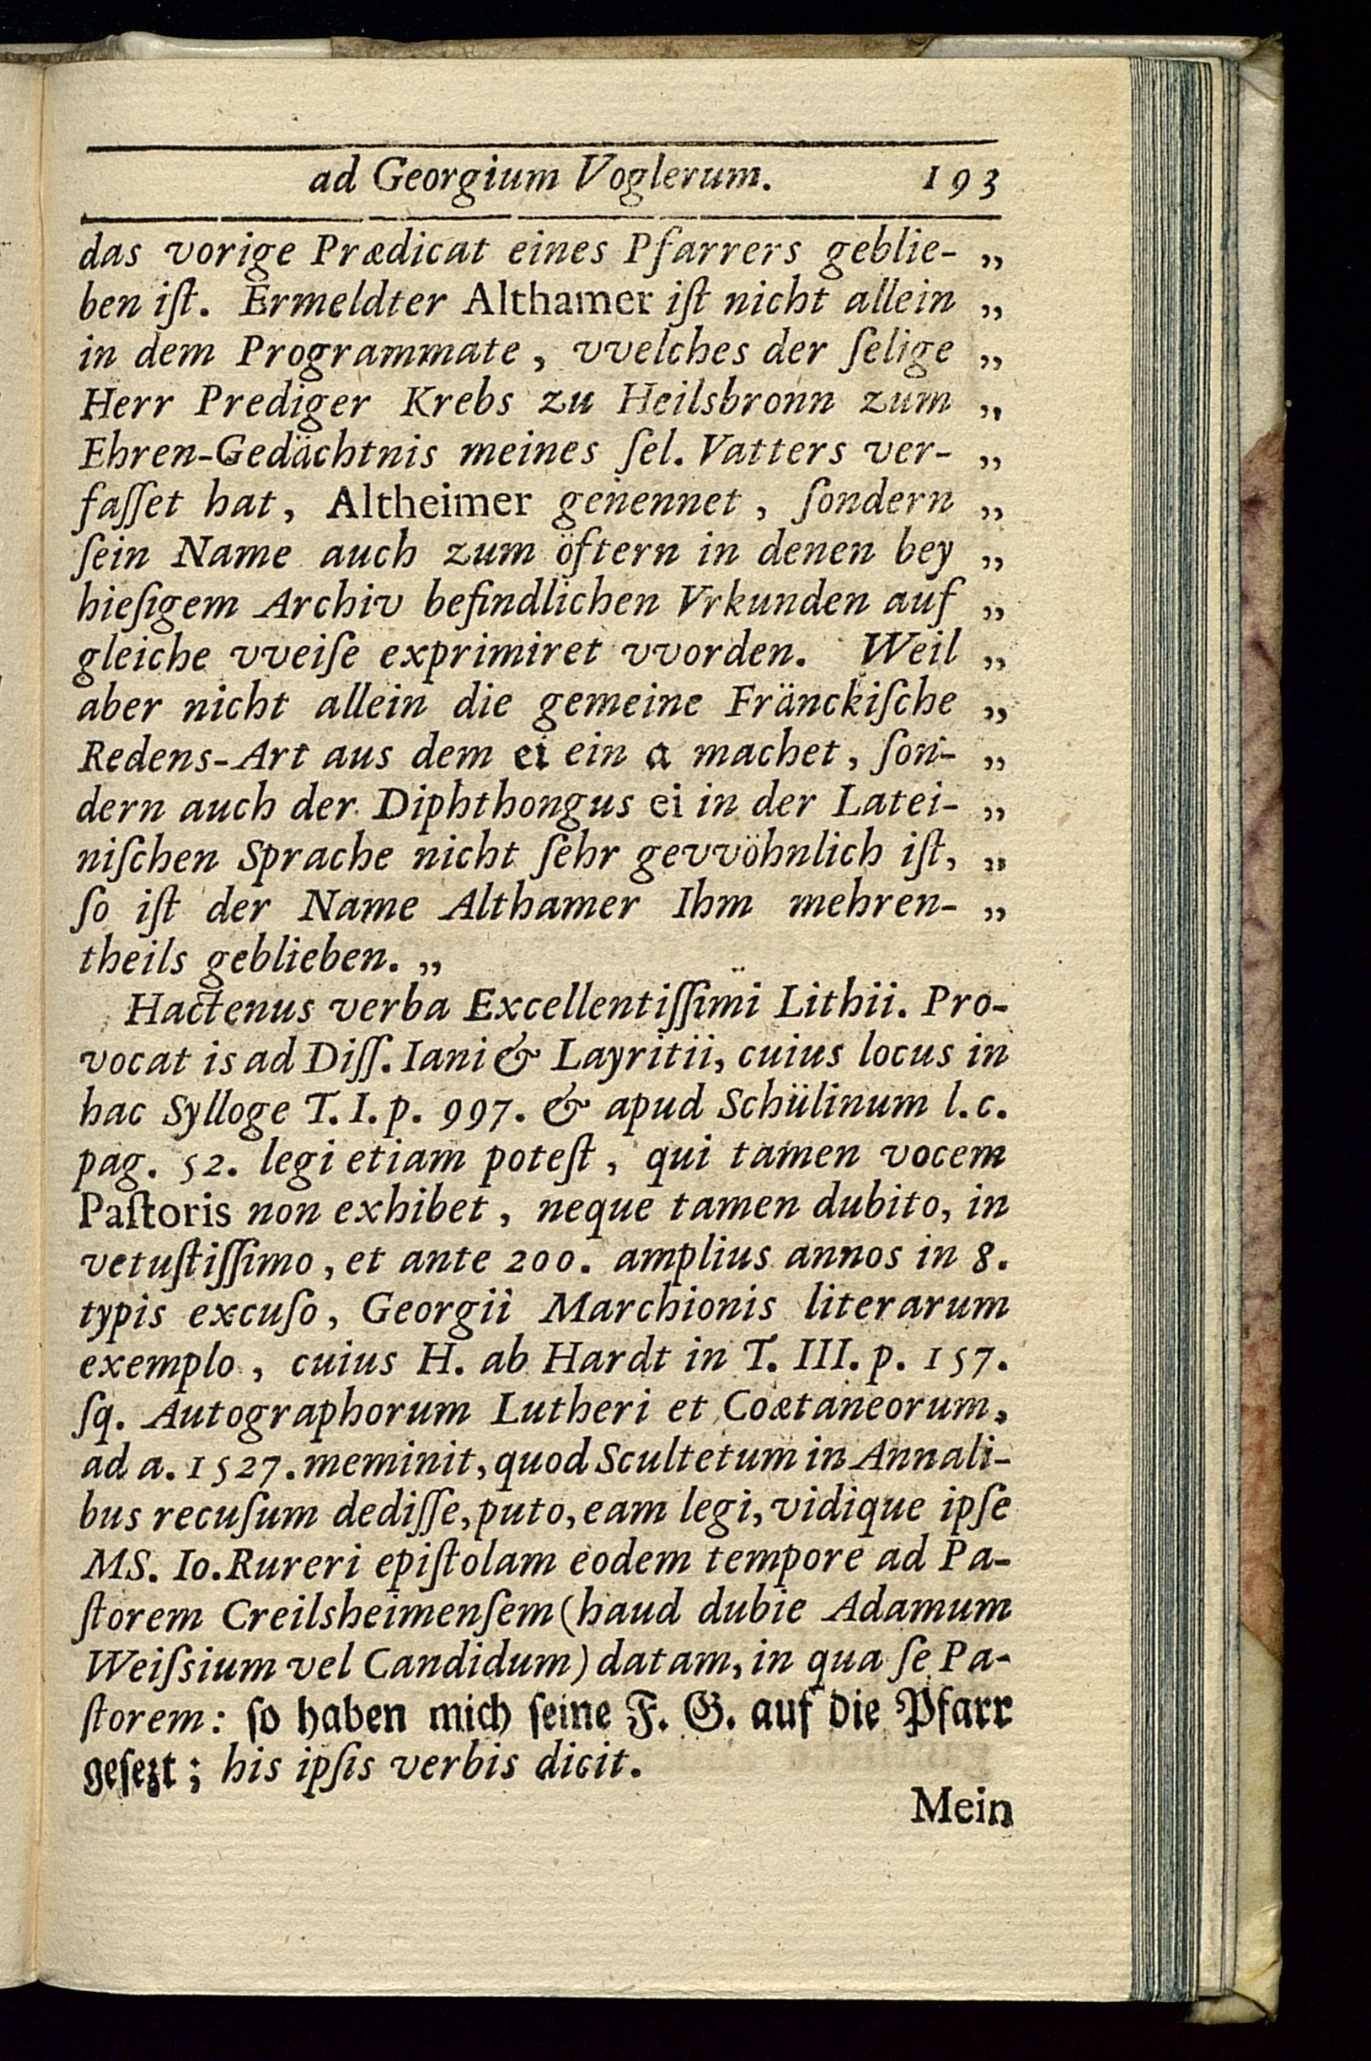 ad Georgium Voglerum. 193
das vorige Prædicat eines Pfarrers geblie- „
ben iſt. Ermeldter Althamer iſt nicht allein „
in dem Programmate, vvelches der ſelige „
Herr Prediger Krebs zu Heilsbronn zum „
Ehren-Gedächtnis meines ſel. Vatters ver- „
faſſet hat, Altheimer genennet, ſondern „
ſein Name auch zum öftern in denen bey „
hieſigem Archiv befindlichen Vrkunden auf „
gleiche vveiſe exprimiret vvorden. Weil „
aber nicht allein die gemeine Fränckiſche „
Redens-Art aus dem ei ein a machet, ſon- „
dern auch der Diphthongus ei in der Latei- „
niſchen Sprache nicht ſehr gevvöhnlich iſt, „
ſo iſt der Name Althamer Ihm mehren- „
theils geblieben. „
Hactenus verba Excellentiſſimi Lithii. Pro-
vocat is ad Diſſ. Iani & Layritii, cuius locus in
hac Sylloge T. I. p. 997. & apud Schülinum l. c.
pag. 52. legi etiam poteſt, qui tamen vocem
Paſtoris non exhibet, neque tamen dubito, in
vetuſtiſſimo, et ante 200. amplius annos in 8.
typis excuſo, Georgii Marchionis literarum
exemplo, cuius H. ab Hardt in T. III. p. 157.
ſq. Autographorum Lutheri et Coætaneorum,
ad a. 1527. meminit, quod Scultetum in Annali-
bus recuſum dediſſe, puto, eam legi, vidique ipſe
MS. Io. Rureri epiſtolam eodem tempore ad Pa-
ſtorem Creilsheimenſem (haud dubie Adamum
Weiſsium vel Candidum) datam, in qua ſe Pa-
ſtorem: ſo haben mich ſeine F. G. auf die Pfarr
geſezt; his ipſis verbis dicit.
Mein